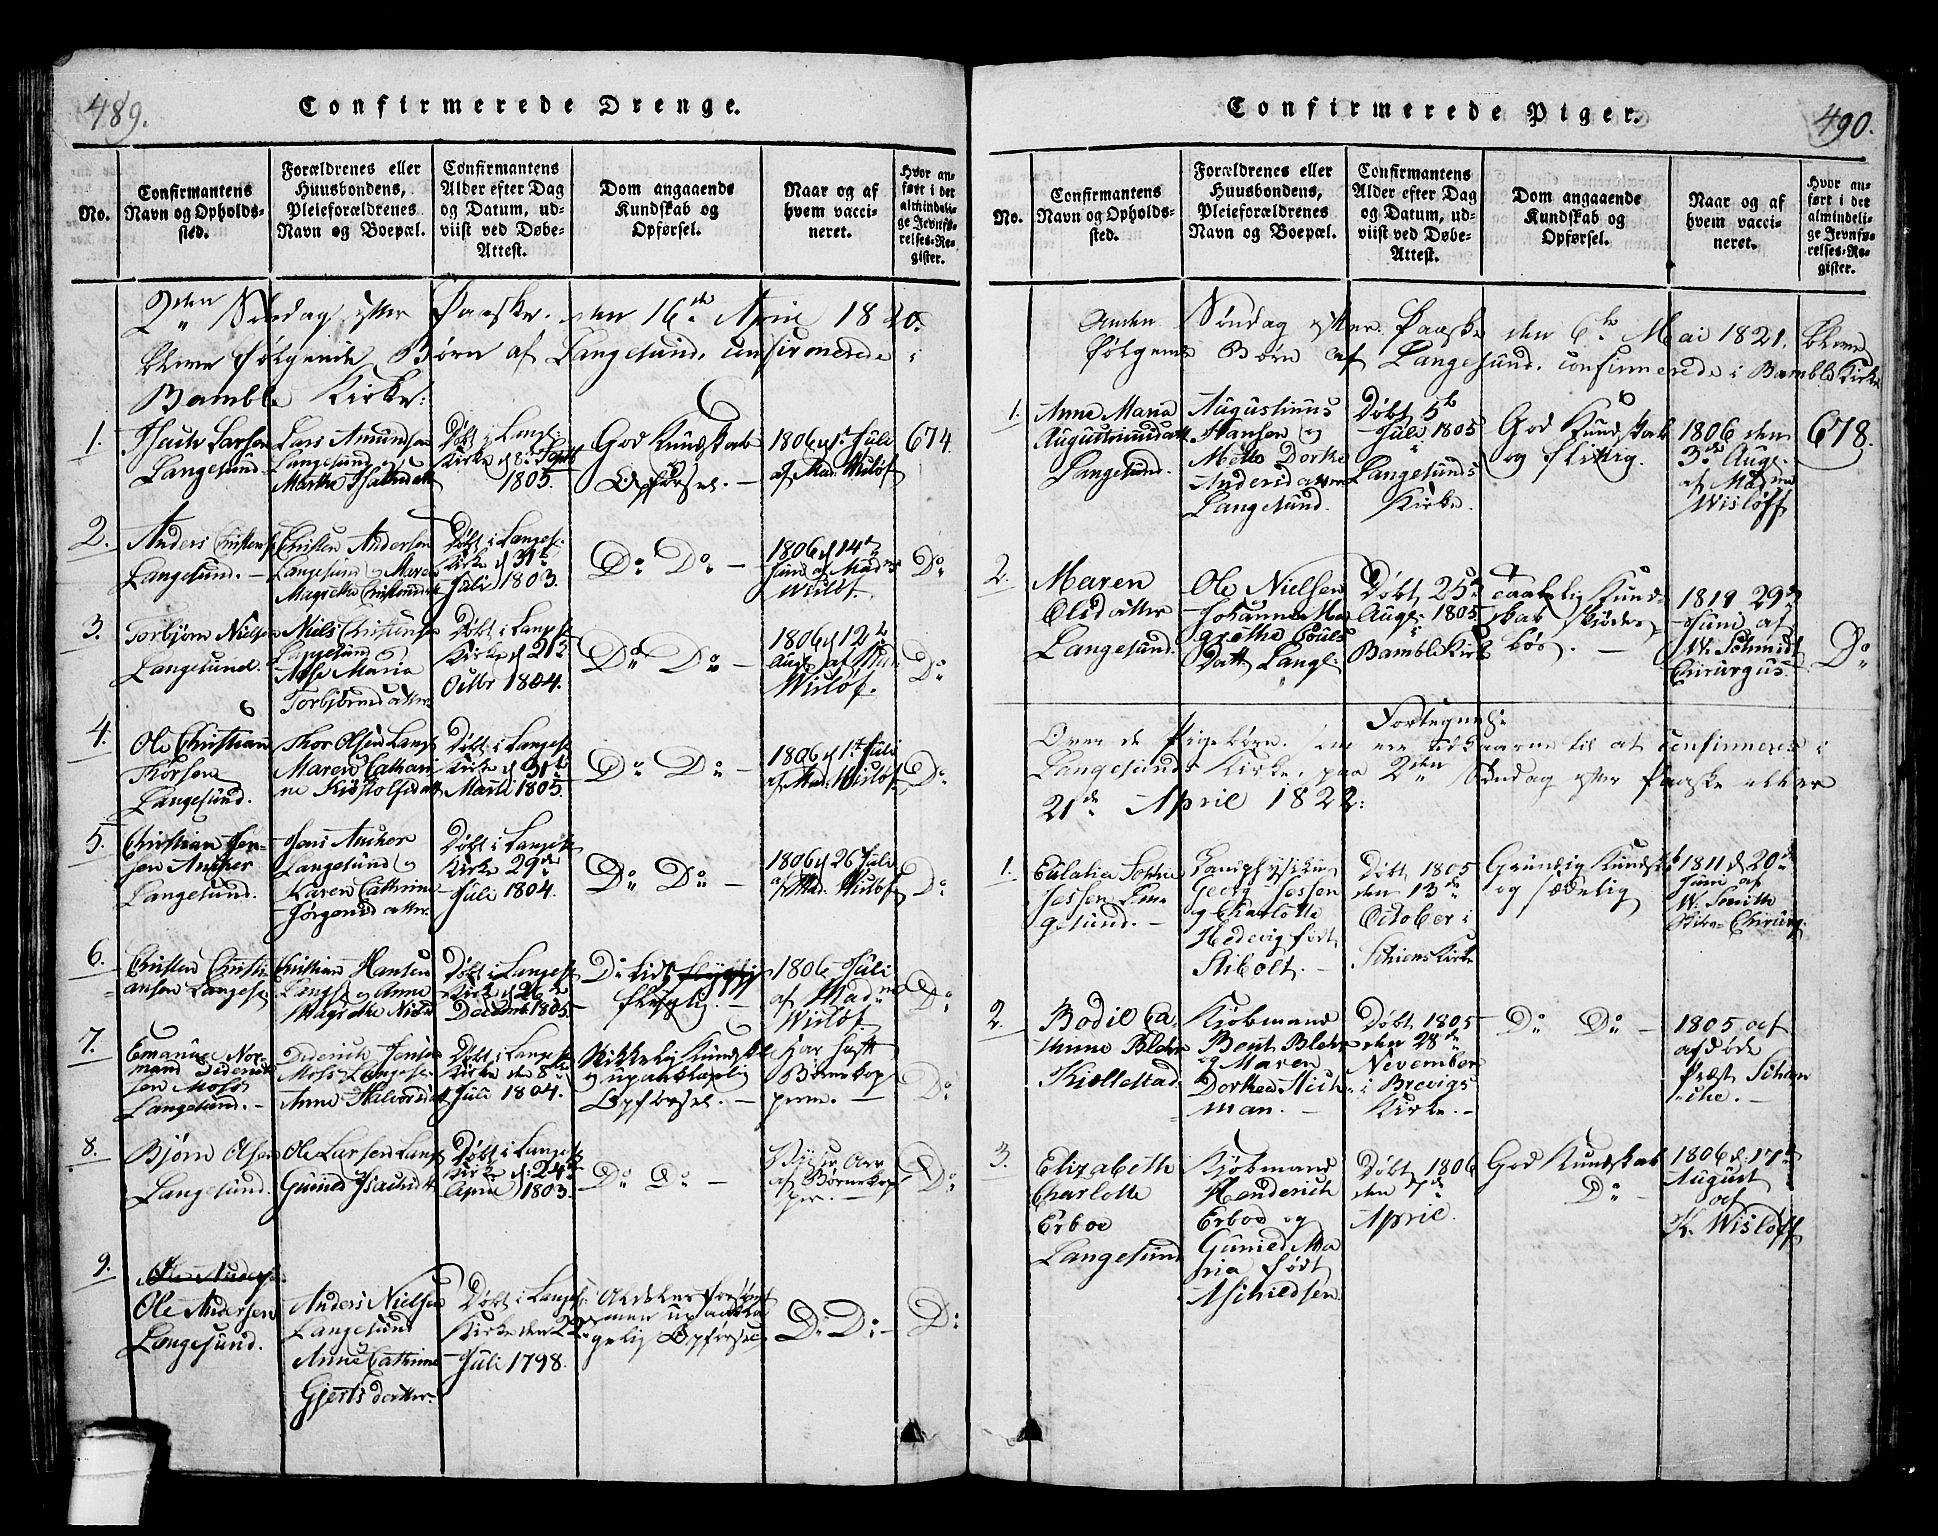 489.
Confirmerede Drenge.
No.
Confirmantens
Navn og Opholds-
sted.
Forældrenes eller
Huusbondens,
Pleieforældrenes
Navn og Boepæl.
Confirmantens
Alder efter Dag
og Datum, ud-
viist ved Døbe-
Attest.
Dom angaaende
Kundskab og
Opførsel.
Naar og af
hvem vacci-
neret.
Hvor an-
ført i det
almindeli-
ge Jevnfø-
relses-Re-
gister.
2den Søndag efter Paaske den 16de April 1820.
bleve følgende Børn af Langesund confirmerede i
Bamble Kirke:
1.
Larsen
Langesund
Lars Amundsen
Langesund og
Marthe
Døbt i Lang:
Kirke d 8de Septr
1805.
God Kundskab
og
Opførsel. —
1806 d 1ste Juli
af Mad. Wisløf
674.
2.
Anders Christensen
Langesund. —
Christen Andersen
Langesund og Maren
Magrethe
Døbt i Langes:
Kirke d 31te
Juli 1803.
Do Do —
1806 d 14de
Juni af Madme
Wisløf.
Do
3.
Torbjørn Nielsen
Langesund.
Niels Christensen
Langesund og
Maria
Torbjørnsdatter
Døbt i Langes
Kirke d 21de
Octbr 1804.
Do Do —
1806 d 12te
Aug af Mad
Wisløf.
Do
4.
Ole Christian
Thorsen
Langesund.
Thor Olsen Langs
Maren Cathari
ne
Døbt i Langes
Kirke d 31te
Marti 1805.
Do Do —
1806 d 1ste Juli
af Mad. Wisløf
Do
5.
Christian Jen-
sen Ancher
Langesund.
Jens Ancher
Langesund og
Karen Cathrine
Jørgensdatter.
Døbt i Langes
Kirke 29de
Juli 1804.
Do Do —
1806 d 26 Juli
af Mad. Wisløf
Do
6.
Christen Christi
ansen Langes
Christian Hansen
Langs og Anne
Magrethe
Døbt i Langes
Kirke d 26de
Decemb 1805.
Do
flittig. —
1806 Juli
af Madme
Wisløf.
Do
7.
Emanuel Nor-
mand Diderich
sen Moss
Langesund. —
Diderich Jensen
Moss Langes
Anne Halvorsd
Døbt i Langes
Kirke den 8de
Juli 1804.
Kundsk
og upaaklagelig
Opførsel. —
Har haft
Børnekop
perne. —
Do
8.
Bjørn Olsen
Langesund.
Ole Larsen Langs
Gunild Isachsdt
Døbt i Langes
Kirke d: 24de
April 1803.
Do Do —
Arr
af Børnekop
per. —
Do
9.
Ole Andersen
Ole Andersen
Langesund.
Anders Nielsen
Langesund
og
Anne Cathrine
Gjertsdatter.
Døbt i Langes
Kirke den 22
Juli 1798.
men upaakla
gelig Opførsel
Do Do —
Do
490.
Confirmerede Piger.
No.
Confirmantens
Navn og Opholds-
sted.
Forældrenes eller
Huusbondens,
Pleieforældrenes
Navn og Boepæl.
Confirmantens
Alder efter Dag
og Datum, ud-
viist ved Døbe-
Attest.
Dom angaaende
Kundskab og
Opførsel.
Naar og af
hvem vacci-
neret.
Hvor an-
ført i det
almindeli-
ge Jevnfø-
relses-Re-
gister.
Anden Søndag efter Paaske den 6te Mai 1821. bleve
følgende Børn af Langesund confirmerede i Bamble Kirke
1.
Anne Maria
Augustinusdatt
Langesund.
Augustinus
Hansen og
Mette Dorthe
Andersdatter
Langesund.
Døbt 5te
Juli 1805
i
Langesunds
Kirke.
God Kundskab
og flittig.
1806 den
3de Aug.
af Madme
Wisløff
678.
2.
Maren
Olsdatter
Langesund.
Ole Nielsen
Johanne Ma
grethe Pouls
Datt Langs:
Døbt 25de
Aug: 1805
i
Bamble Kirk
taalelig Kund-
skab
1819 29de
Juni af
W. Schmidt
Chirurgus
Do
Fortegnelse
Over de Pigebørn, som ere til at confirmeres i
Langesunds Kirke, paa 2den Søndag efter Paaske eller
21de April 1822:
1.
Eulalia Sophie
Jessen Lan-
gesund. —
Landphysicus
Georg Jessen
og Charlotte
Hedevig født
Stibolt. —
Døbt 1805
den 13de
October i
Schiens Kirke
Grundig Kundskab
og sædelig
1811 d 20de
Juni af
W. Smith
Chirurg.
2.
Bodil Ca
thrine Blehr
Kjøbmand
Bent Blehr
og Maren
Dorthea Aich-
man. —
Døbt 1805
den 28de
November
i Brevigs
Kirke. —
Do Do —
1805 af
afdøde
Præst
3.
Elizabeth
Charlotte
Erboe
Langesund
Kjøbmand
Henderich
Erboe og
Gunild Ma
ria født
Aschildsen.
Døbt 1806
den 7de
April.
God Kundskab
Do —
1806 d. 17de
August
af
K. Wisløff